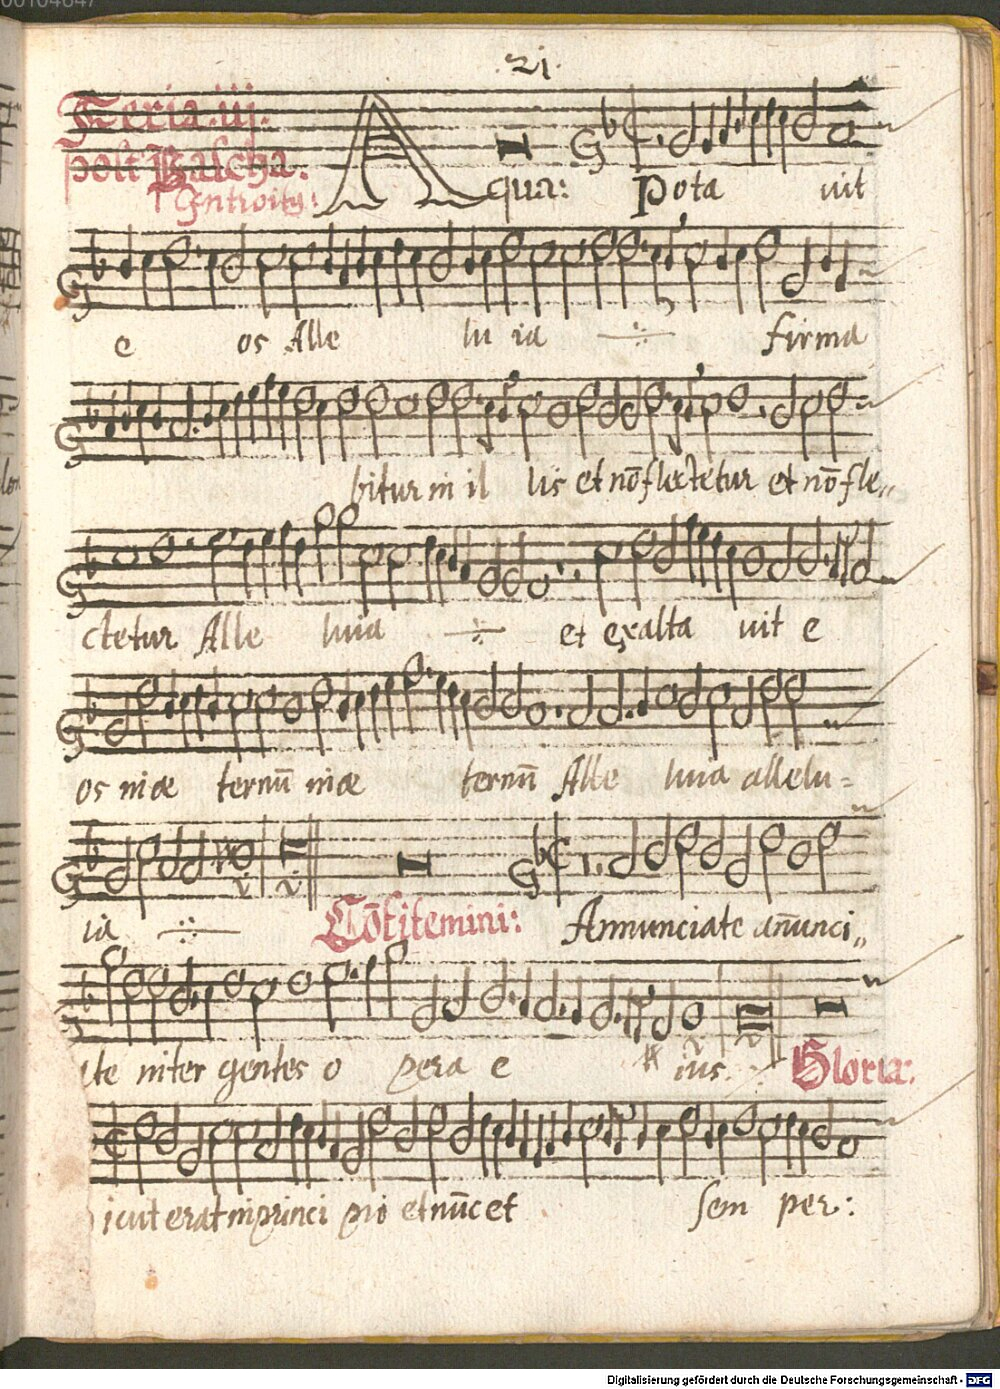 00104647
.21.
Feria.iij.
post Pascha.
Introitus:
Aqua: Pota uit
e os Alle lu ia firma
bitur in il lis et nō flectetur et nō fle„
ctetur Alle luia et exalta uit e
os in æ ternū in æ ternū Alle luia allelu=
ia Cōfitemini: Annunciate anūnci„
ate inter gentes o pera e ius. Gloria:
icut erat in princi pio et nūc et sem per:
Digitalisierung gefördert durch die Deutsche Forschungsgemeinschaft - DFG